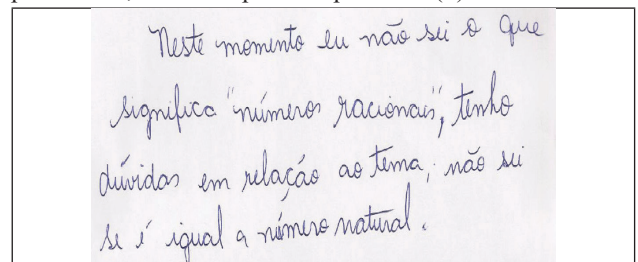 Neste momento eu não sei o que
significa "números racionais", tenho
dúvidas em relação ao tema, não sei
se é igual a número natural.